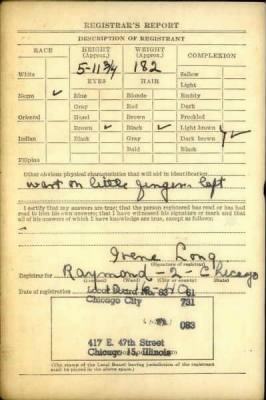 REGISTRAR'S REPORT
DESCRIPTION OF REGISTRANT
RACE HEIGHT (Approx.) WEIGHT (Approx.) COMPLEXION
5-11 3/4 182
White Sallow
EYES HAIR Light
Negro ✓ Blue Blonde Ruddy
Gray Red Dark
Oriental Hazel Brown Freckled
Brown ✓ Black ✓ Light brown
Indian Black Gray Dark brown ✓
Bald Black
Filipino
Other obvious physical characteristics that will aid in identification
wart on little finger left
I certify that my answers are true; that the person registered has read or has had
read to him his own answers; that I have witnessed his signature or mark and that
all of his answers of which I have knowledge are true, except as follows:
Irene Long
(Signature of registrar)
Registrar for Raymond - 2 - Chicago
Date of registration
Local Board No. 83 61
Chicago City 731
083
417 E. 47th Street
Chicago 15, Illinois
(The stamp of the Local Board having jurisdiction of the registrant
shall be placed in the above space.)